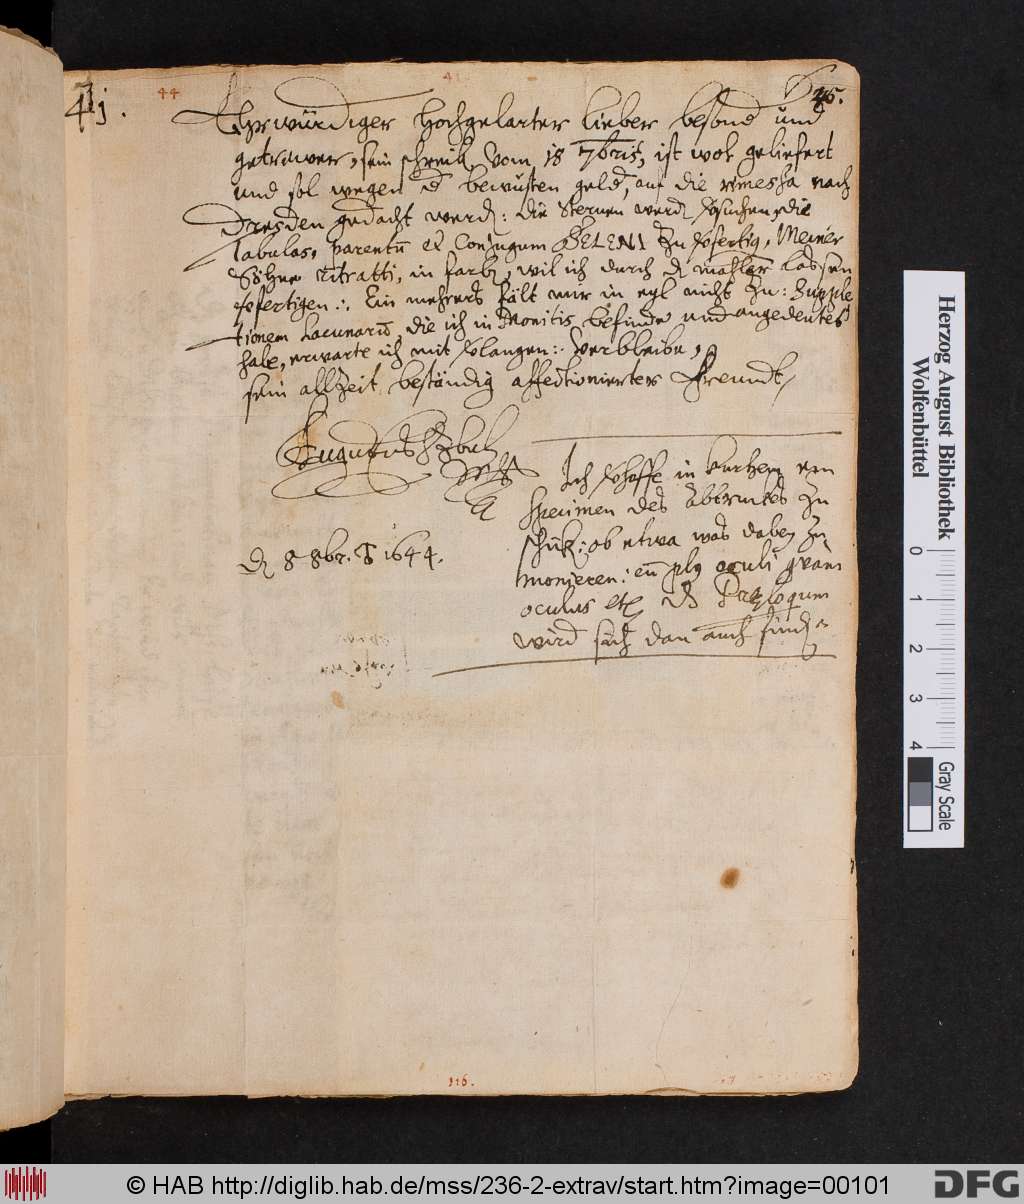 41.
44
45.
Ehrwürdiger hochgelarter lieber besond und
getrewer, sein schreib vom 18 7bris, ist wol geliefert
und sol wegen d bewusten geld, auf die remessa nach
Dresden gedacht werd: die Sternen werd die
Tabulas, parentū et Conjugum SELENI zu fertig, Meiner
Söhne ritratti, in farb, wil ich durch d mahler lassen
fertigen: Ein mehrers fält mir in eyl nicht zu: Supple
tionem Lacunarū, die ich in Monitis befinde und angedeutet
habe, erwarte ich mit langen: Verbleibe,
sein allzeit beständig affectionierter Freundt,
Augustus HzBuL
Ich hoffe in kurtzem ein
specimen des abtruckes zu
schick: ob etwa was dabey zu
monieren: en plus oculi quam
oculus etc. Præloquium
wird sich dan auch find
d 8 8br. 1644.
116.
Herzog August Bibliothek
Wolfenbüttel
0 1 2 3 4
Gray Scale
© HAB http://diglib.hab.de/mss/236-2-extrav/start.htm?image=00101
DFG